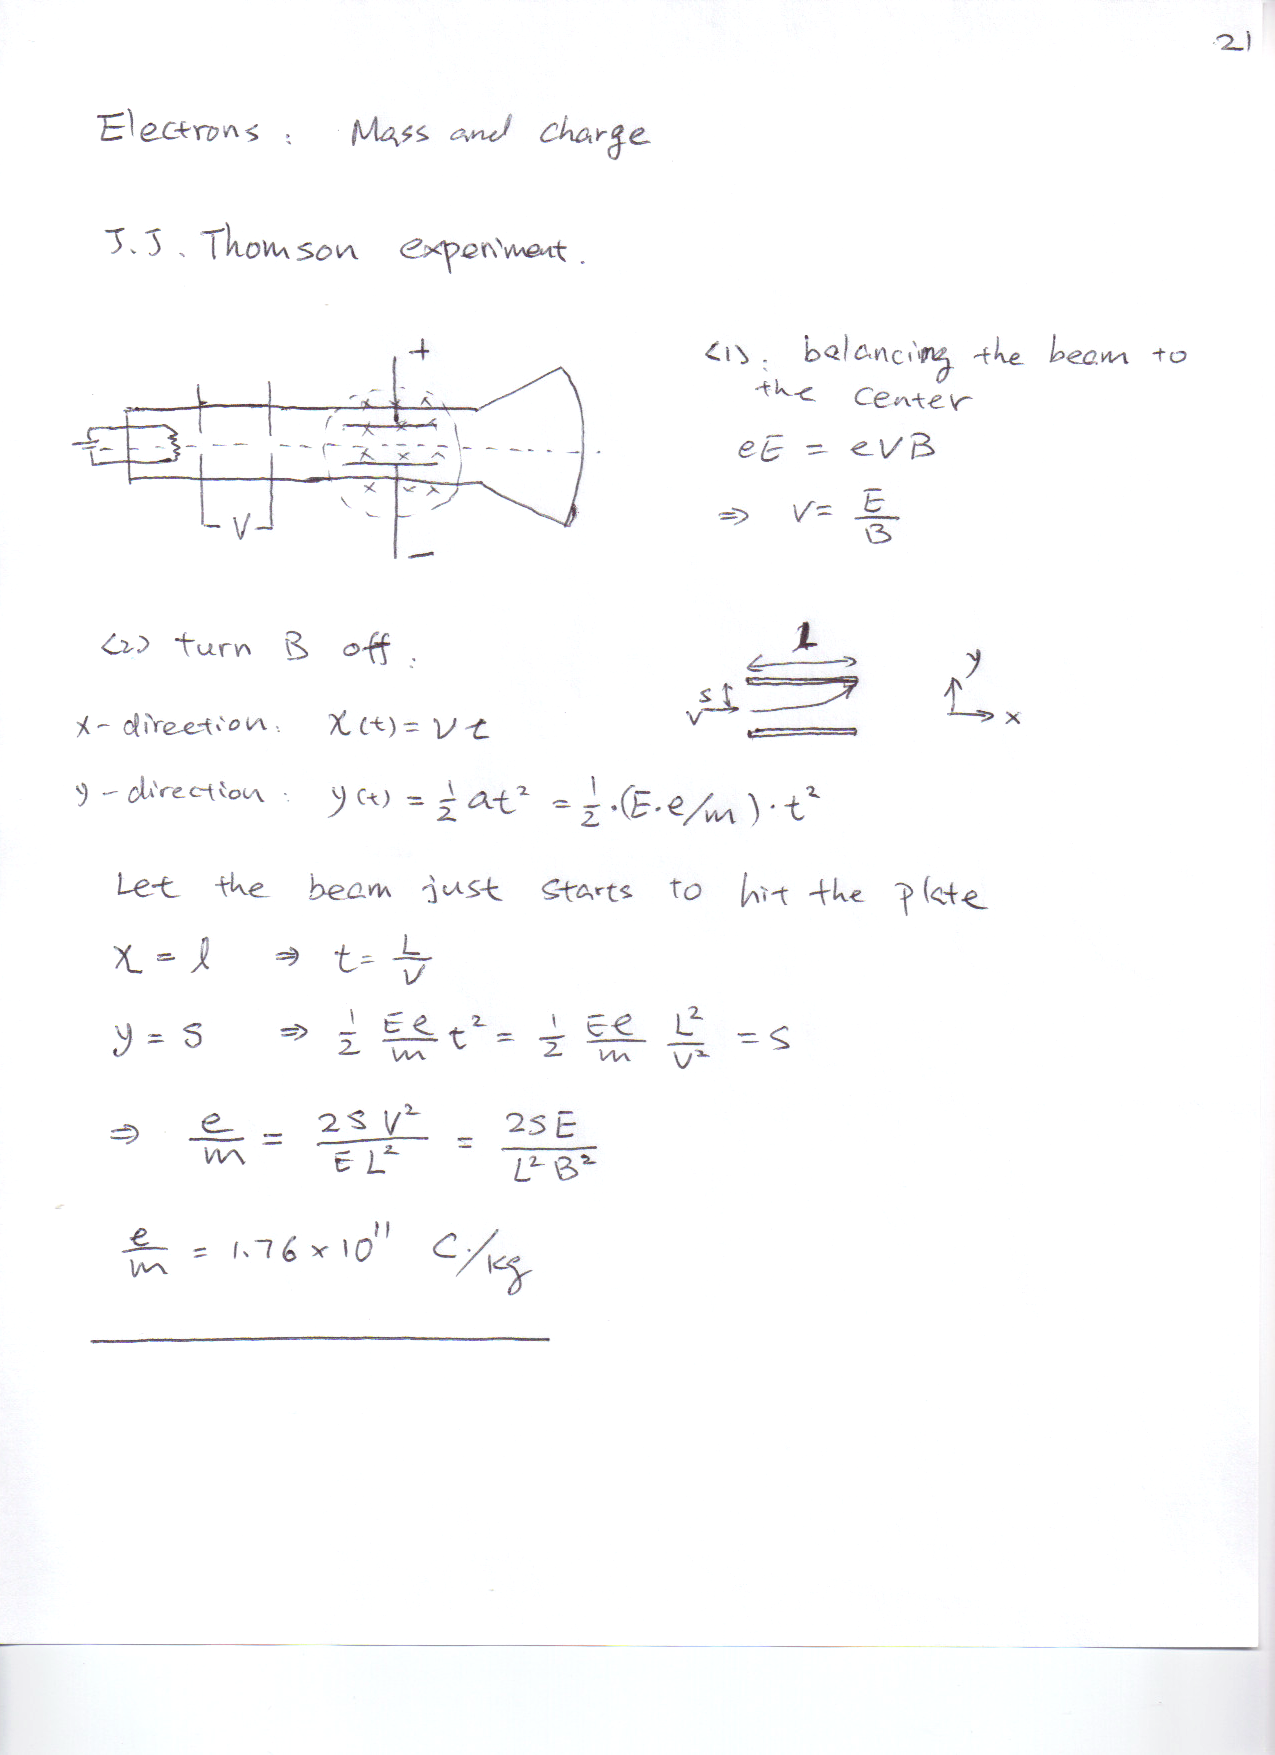 21
Electrons : Mass and charge
J.J. Thomson experiment.
+
V
−
<1>. balancing the beam to
the center
eE = eVB
⇒ V = E/B
<2> turn B off.
l
s
v
y
x
x-direction: x(t) = vt
y-direction: y(t) = 1/2 at² = 1/2·(E·e/m)·t²
Let the beam just starts to hit the plate
x = l ⇒ t = L/V
y = S ⇒ 1/2 Ee/m t² = 1/2 Ee/m L²/V² = S
⇒ e/m = 2SV²/EL² = 2SE/L²B²
e/m = 1.76 × 10¹¹ C/kg